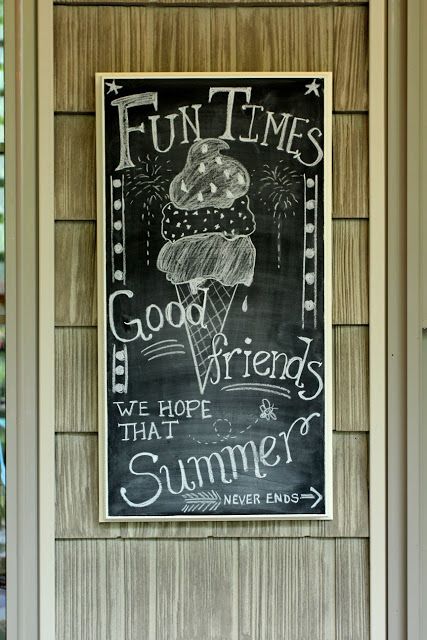 FUN TIMES
Good
friends
WE HOPE
THAT
Summer
NEVER ENDS